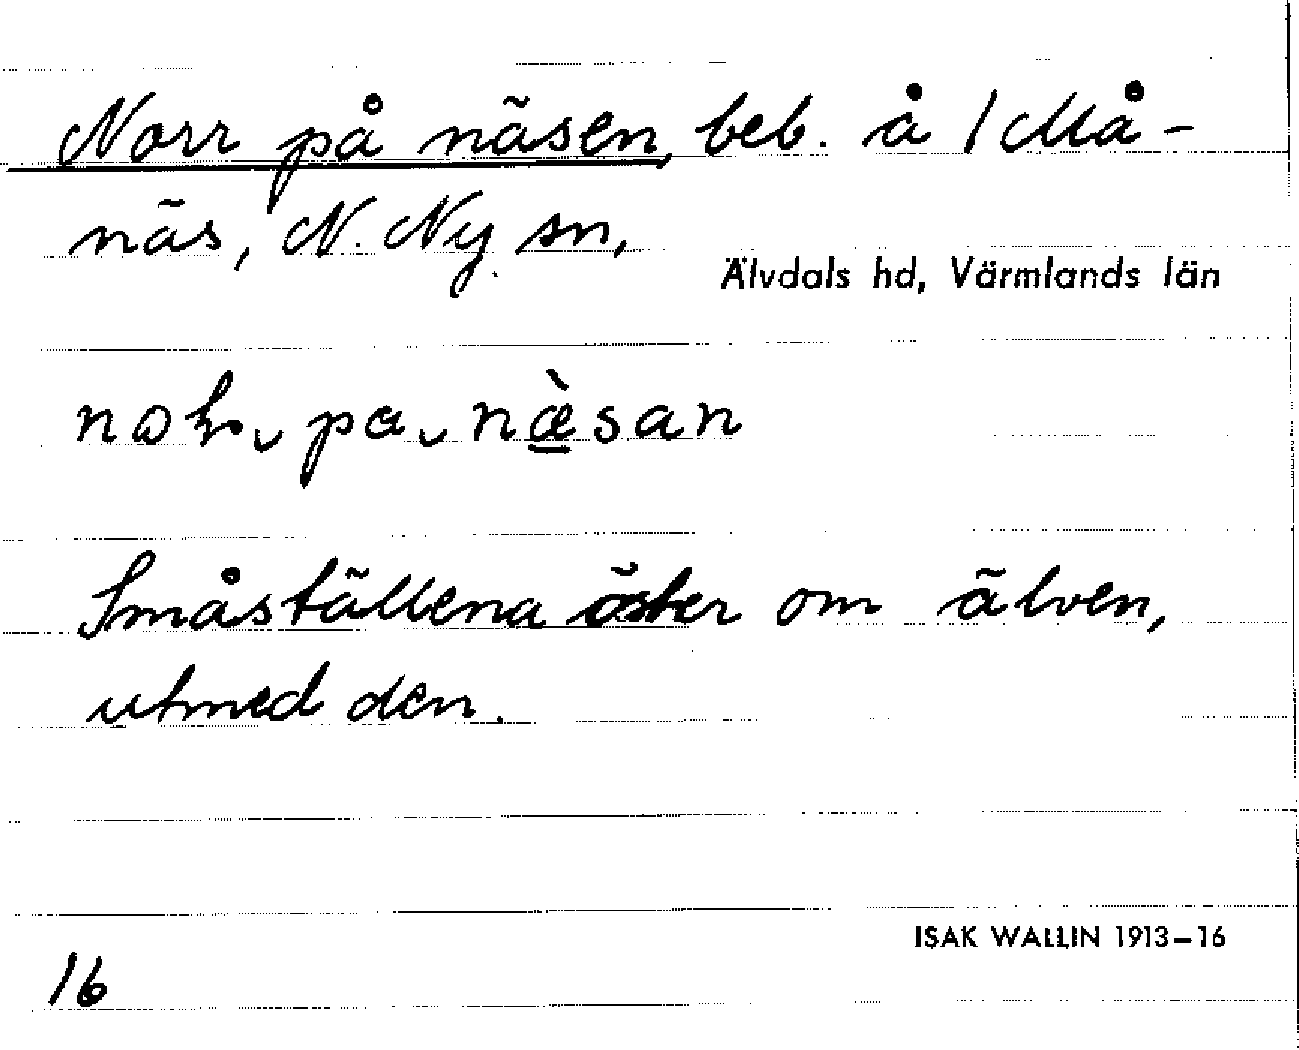 Norr på näsen, beb. å 1 Må-
näs, N. Ny sn,
Älvdals hd, Värmlands län
pa næ̀san
Småställena öster om älven,
utmed den.
ISAK WALLIN 1913–16
16